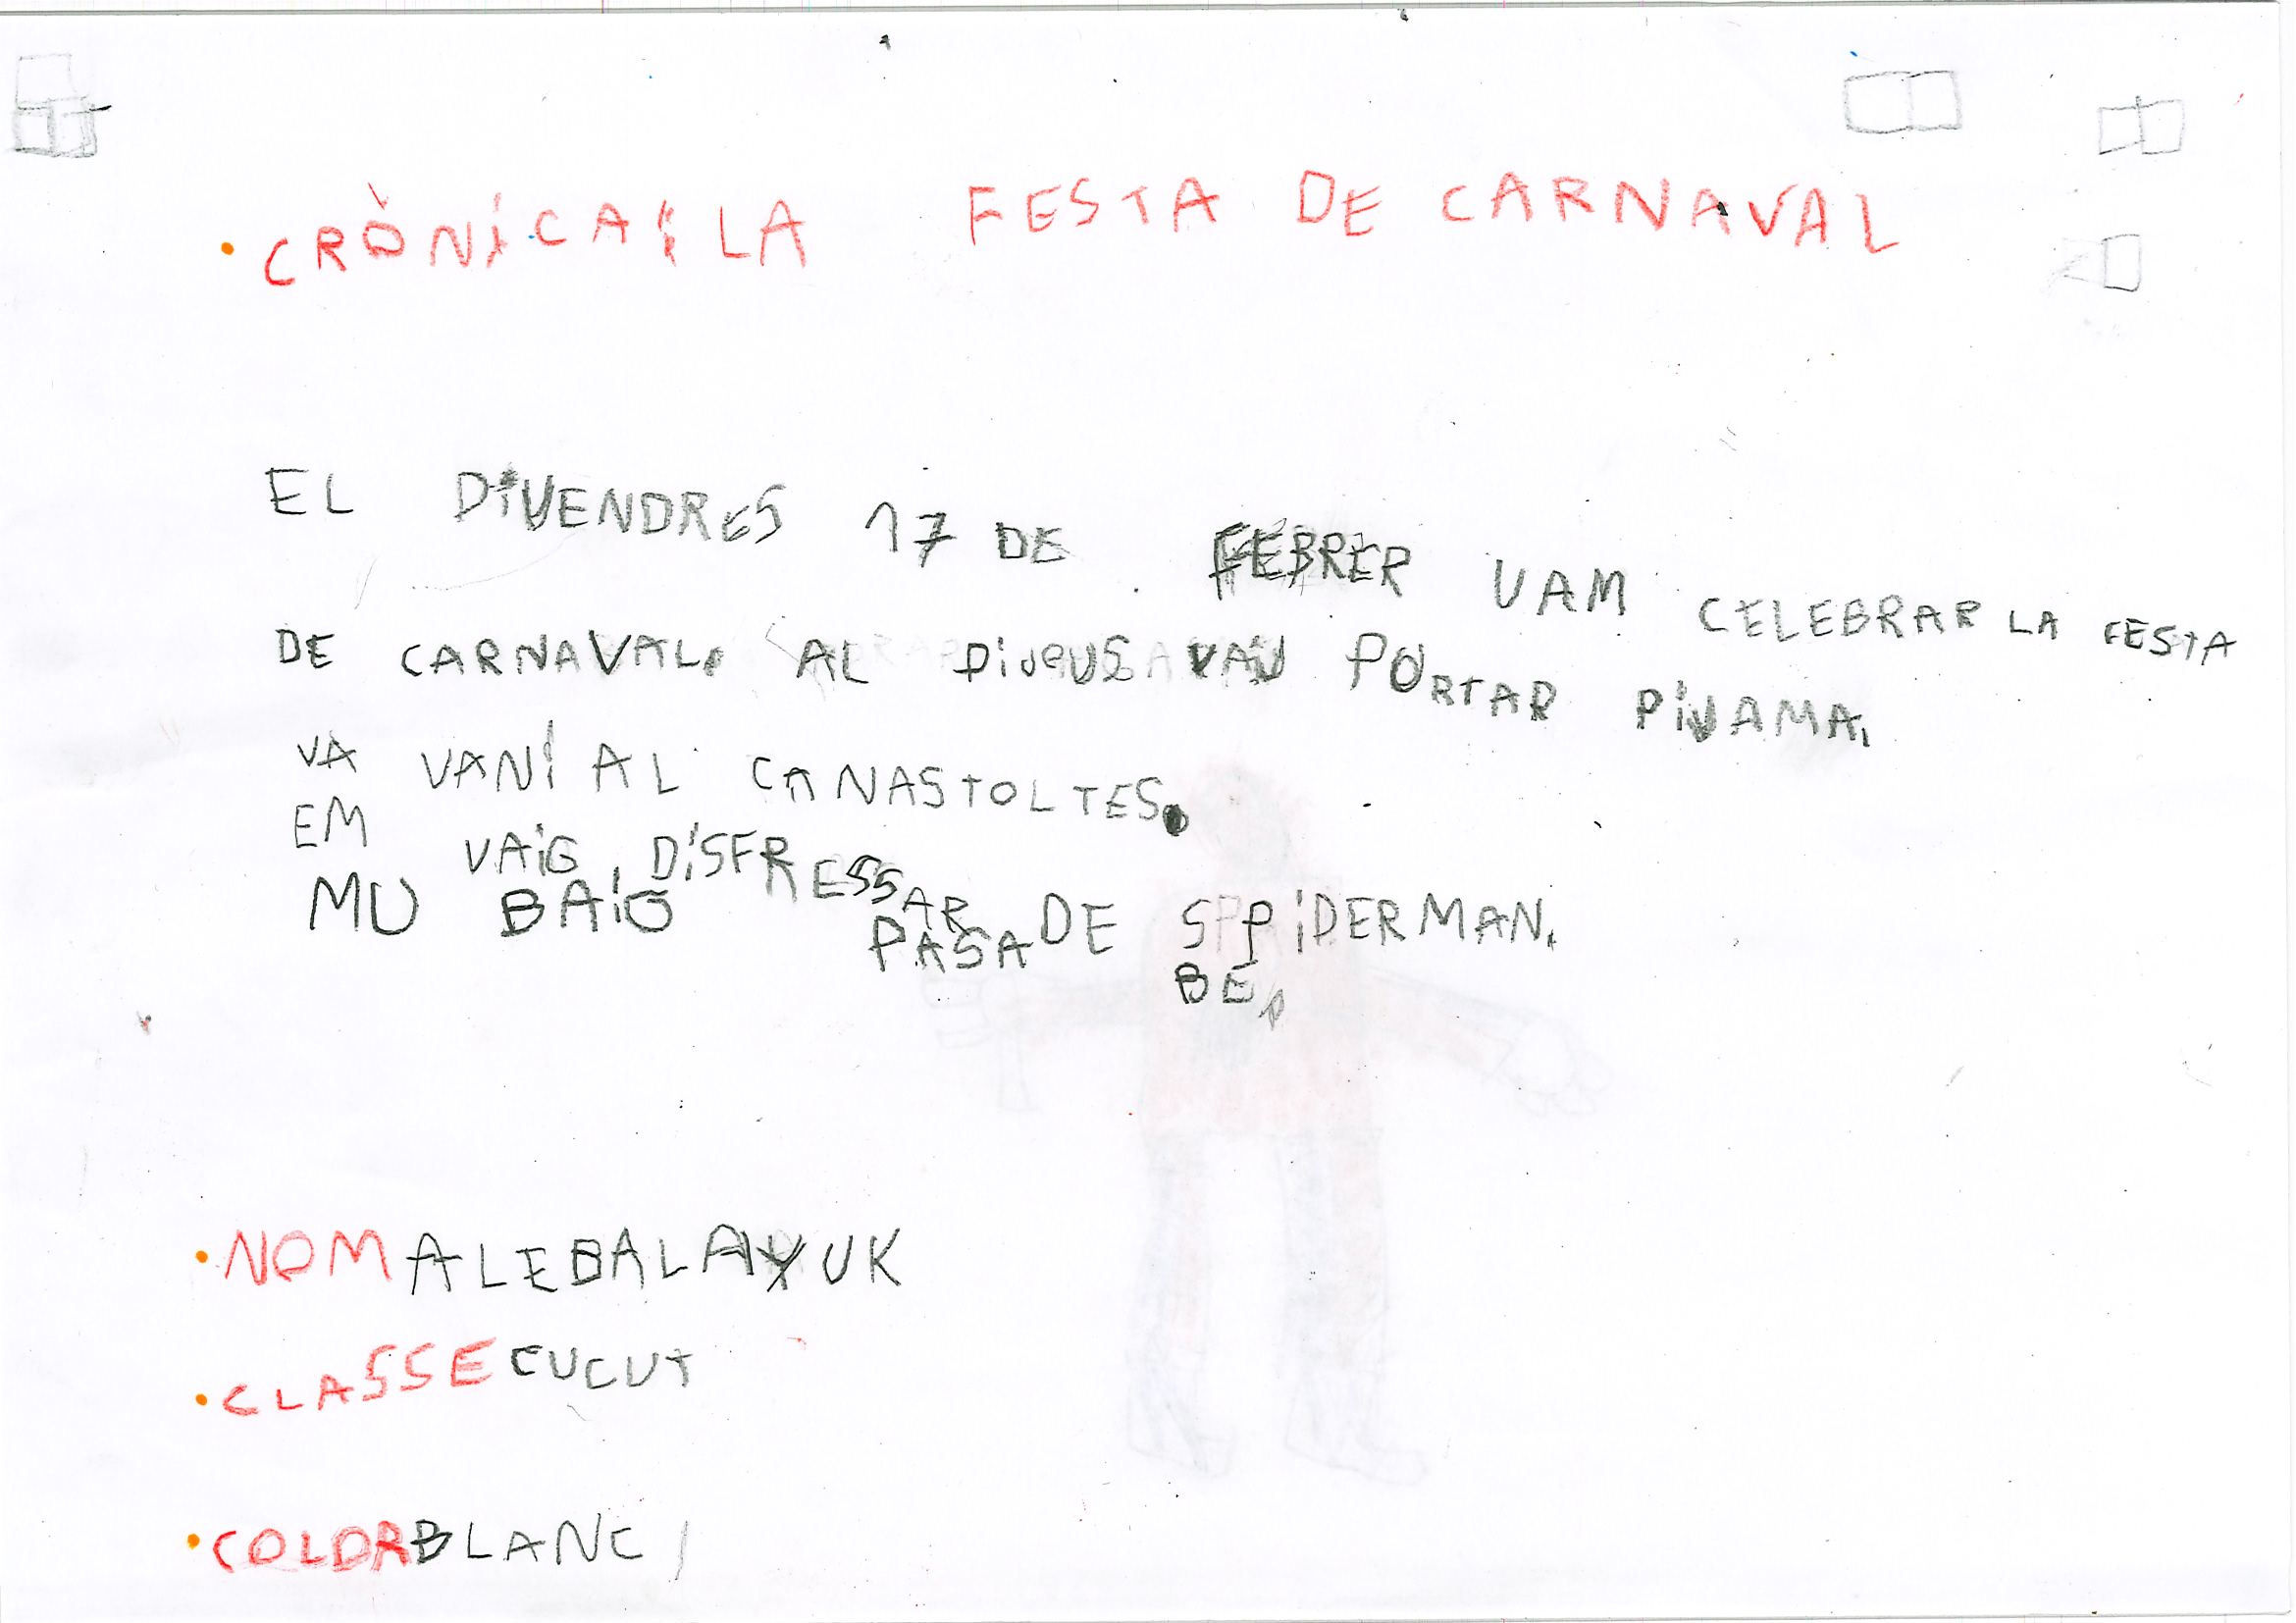 • CRÒNICA: LA FESTA DE CARNAVAL
EL DIVENDRES 17 DE FEBRER VAM CELEBRAR LA FESTA
DE CARNAVAL. AL DIJOUS VAIJ PORTAR PIJAMA.
VA VANI AL CANASTOLTES.
EM VAIG DISFRESSAR DE SPIDERMAN.
MU BAIG PASA BE.
• NOM ALEBALAYUK
• CLASSE CUCUT
• COLOR BLANC